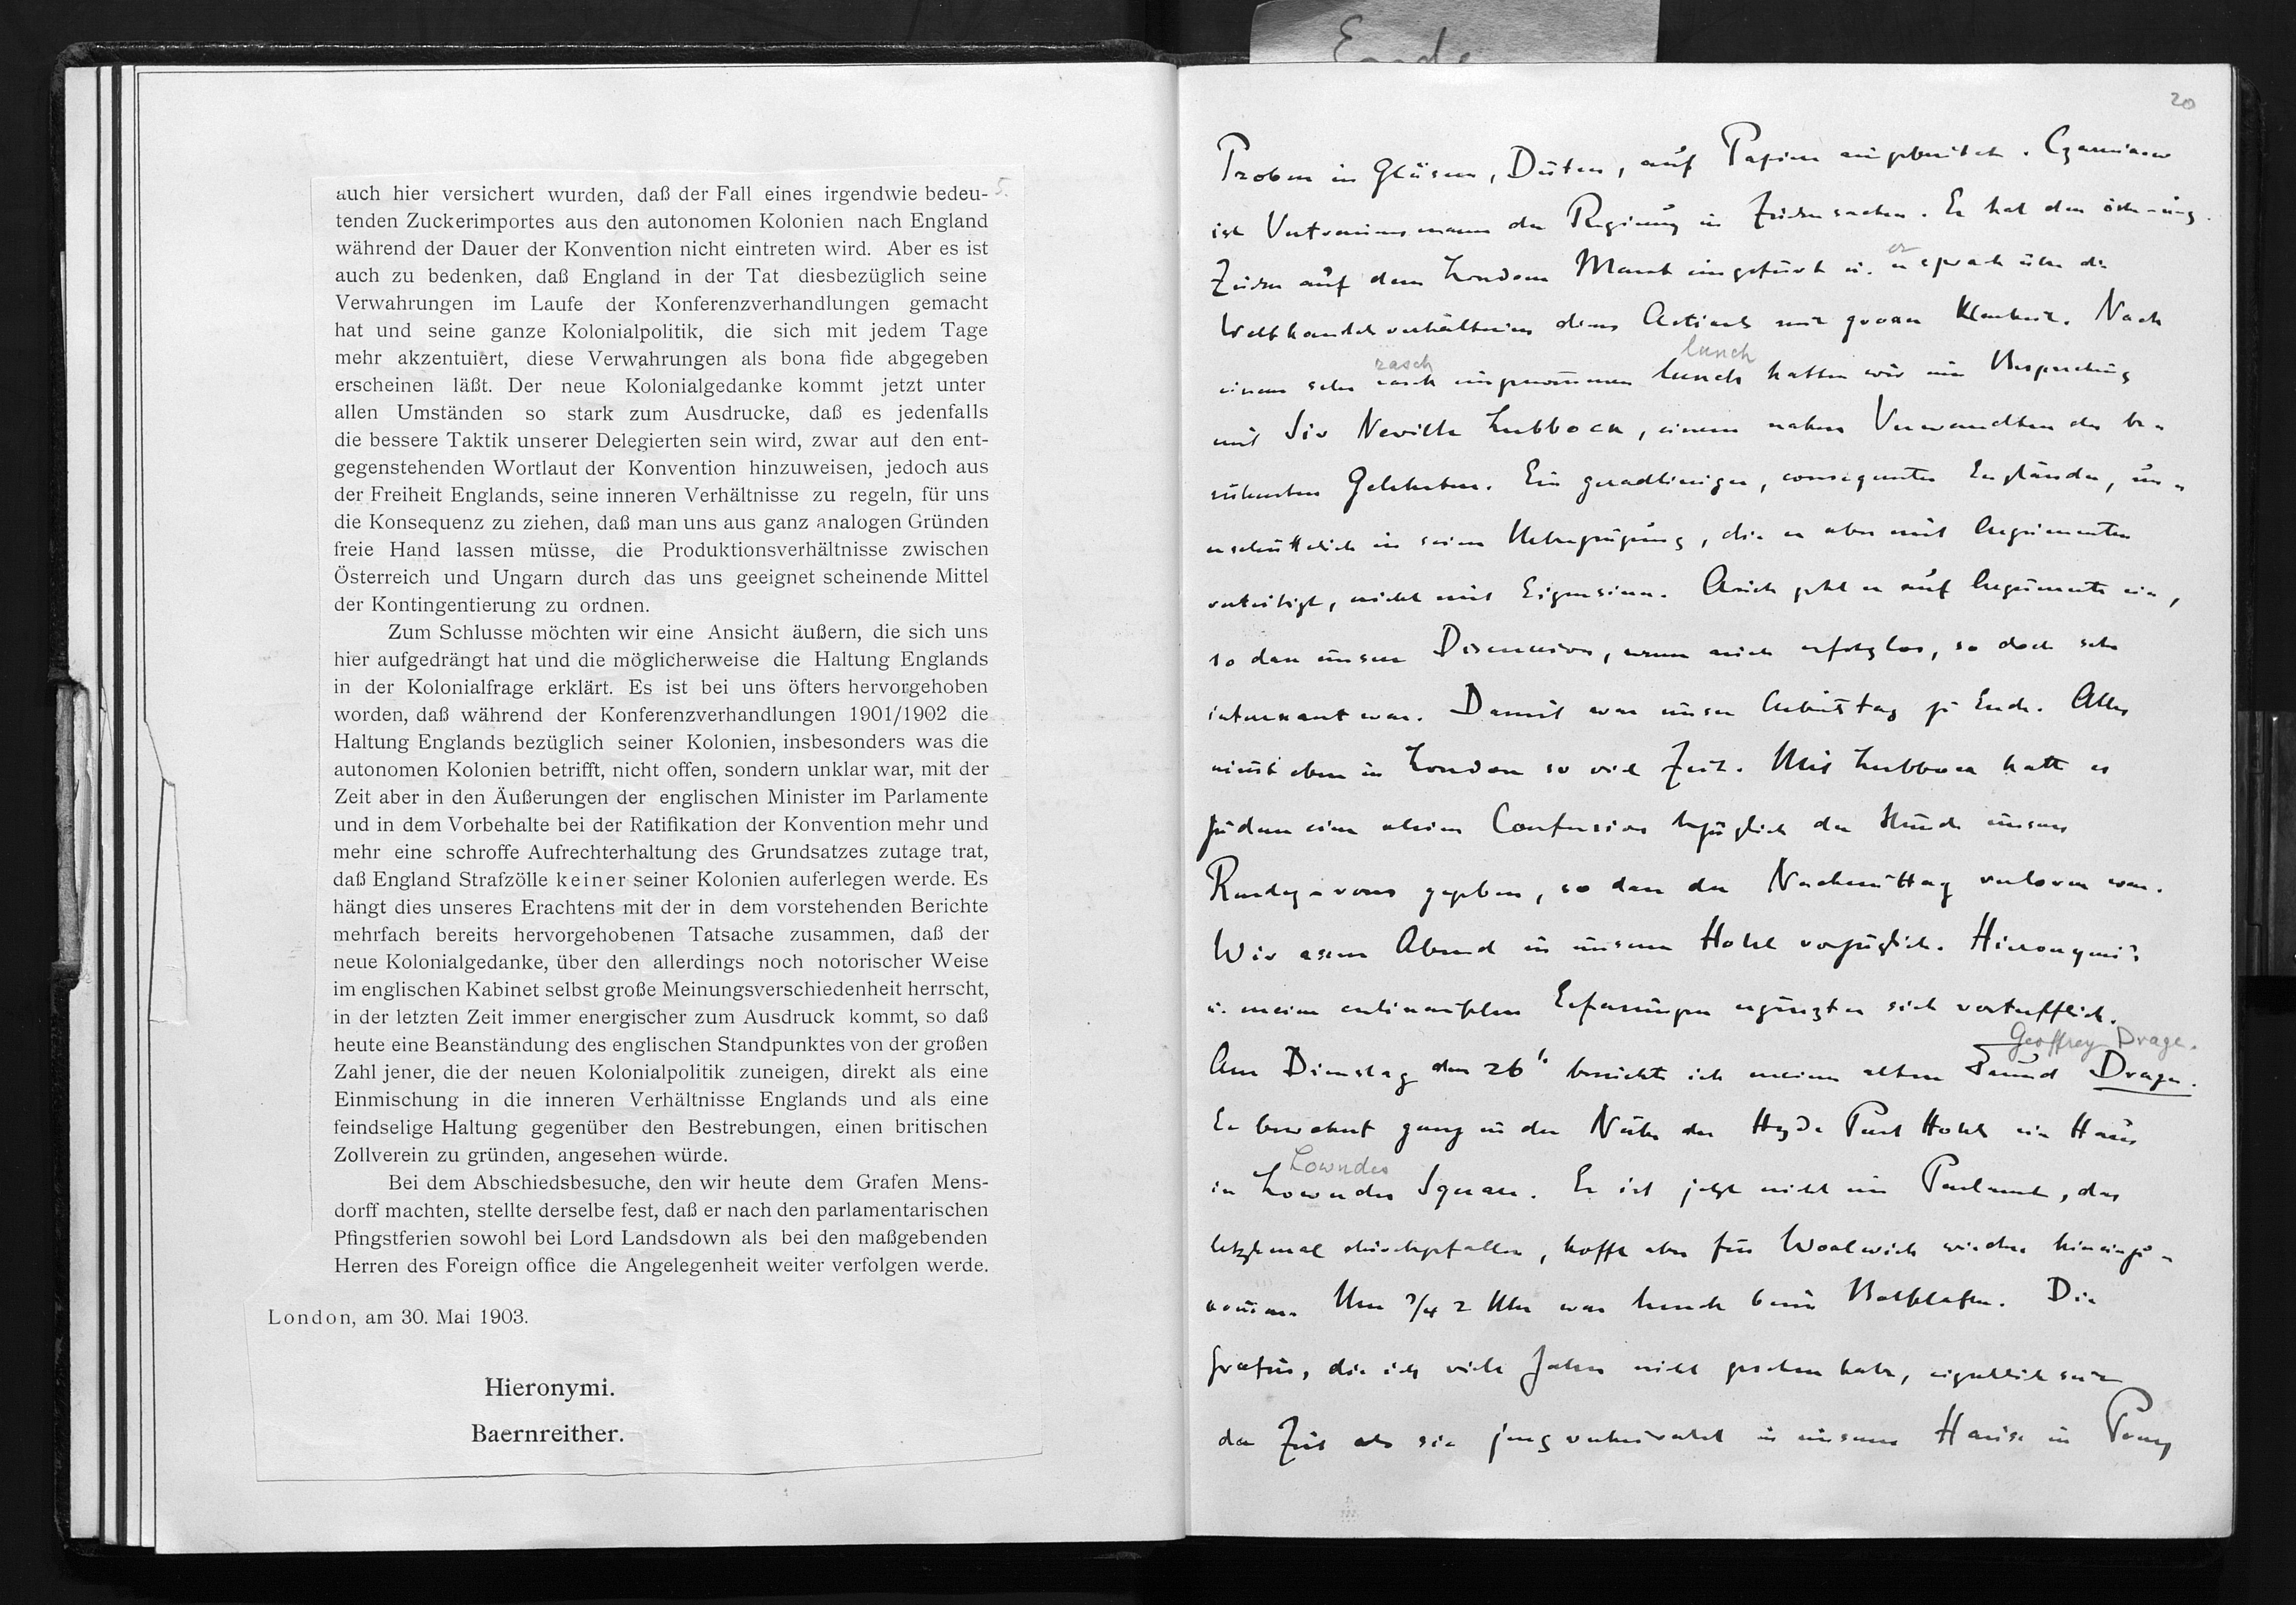 auch hier versichert wurden, daß der Fall eines irgendwie bedeu- 5.
tenden Zuckerimportes aus den autonomen Kolonien nach England
während der Dauer der Konvention nicht eintreten wird. Aber es ist
auch zu bedenken, daß England in der Tat diesbezüglich seine
Verwahrungen im Laufe der Konferenzverhandlungen gemacht
hat und seine ganze Kolonialpolitik, die sich mit jedem Tage
mehr akzentuiert, diese Verwahrungen als bona fide abgegeben
erscheinen läßt. Der neue Kolonialgedanke kommt jetzt unter
allen Umständen so stark zum Ausdrucke, daß es jedenfalls
die bessere Taktik unserer Delegierten sein wird, zwar auf den ent-
gegenstehenden Wortlaut der Konvention hinzuweisen, jedoch aus
der Freiheit Englands, seine inneren Verhältnisse zu regeln, für uns
die Konsequenz zu ziehen, daß man uns aus ganz analogen Gründen
freie Hand lassen müsse, die Produktionsverhältnisse zwischen
Österreich und Ungarn durch das uns geeignet scheinende Mittel
der Kontingentierung zu ordnen.
Zum Schlusse möchten wir eine Ansicht äußern, die sich uns
hier aufgedrängt hat und die möglicherweise die Haltung Englands
in der Kolonialfrage erklärt. Es ist bei uns öfters hervorgehoben
worden, daß während der Konferenzverhandlungen 1901/1902 die
Haltung Englands bezüglich seiner Kolonien, insbesonders was die
autonomen Kolonien betrifft, nicht offen, sondern unklar war, mit der
Zeit aber in den Äußerungen der englischen Minister im Parlamente
und in dem Vorbehalte bei der Ratifikation der Konvention mehr und
mehr eine schroffe Aufrechterhaltung des Grundsatzes zutage trat,
daß England Strafzölle keiner seiner Kolonien auferlegen werde. Es
hängt dies unseres Erachtens mit der in dem vorstehenden Berichte
mehrfach bereits hervorgehobenen Tatsache zusammen, daß der
neue Kolonialgedanke, über den allerdings noch notorischer Weise
im englischen Kabinet selbst große Meinungsverschiedenheit herrscht,
in der letzten Zeit immer energischer zum Ausdruck kommt, so daß
heute eine Beanständung des englischen Standpunktes von der großen
Zahl jener, die der neuen Kolonialpolitik zuneigen, direkt als eine
Einmischung in die inneren Verhältnisse Englands und als eine
feindselige Haltung gegenüber den Bestrebungen, einen britischen
Zollverein zu gründen, angesehen würde.
Bei dem Abschiedsbesuche, den wir heute dem Grafen Mens-
dorff machten, stellte derselbe fest, daß er nach den parlamentarischen
Pfingstferien sowohl bei Lord Landsdown als bei den maßgebenden
Herren des Foreign office die Angelegenheit weiter verfolgen werde.
London, am 30. Mai 1903.
Hieronymi.
Baernreither.
Ende
20
Proben in Gläsern, Düten, auf Papier ausgebreitet. Czarnikow
ist Vertrauensmann der Regierung in Zuckersachen. Er hat den österr-ung.
er
Zucker auf dem Londoner Markt eingeführt u. er sprach über die
Welthandelsverhältnisse dieses Artikels mit grosser Klarheit. Nach
rasch lunch
einem sehr rasch eingenommenen lunch hatten wir eine Besprechung
mit Sir Neville Lubbock, einem nahen Verwandten des be-
rühmten Gelehrten. Ein geradliniger, consequenter Engländer, un-
erschütterlich in seiner Ueberzeugung, die er aber mit Argumenten
verteidigt, nicht mit Eigensinn. Auch geht er auf Argumente ein,
so dass unsere Discussion, wenn auch erfolglos, so doch sehr
interessant war. Damit war unser Arbeitstag zu Ende. Alles
nimt eben in London so viel Zeit. Mit Lubbock hatte es
zudem eine kleine Confusion bezüglich der Stunde unseres
Rendez-vous gegeben, so dass der Nachmittag verloren war.
Wir assen Abend in unserem Hotel vorzüglich. Hieronymi's
u. meine culinarischen Erfarungen ergänzten sich vortrefflich.
Geoffrey Drage.
Am Dienstag den 26t. besuchte ich meinen alten Freund Drage.
Er bewohnt ganz in der Nähe des Hyde Park Hotels ein Haus
Lowndes
in Lowndes Square. Er ist jetzt nicht im Parlament, das
letztemal durchgefallen, hofft aber für Woolwich wieder hineinzu-
komen. Um 3/4 2 Uhr war lunch beim Botschafter. Die
Gräfin, die ich viele Jahre nicht gesehen habe, eigentlich seit
der Zeit als sie jung verheiratet in unserem Hause in Prag